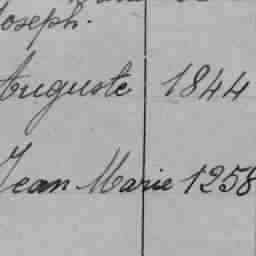 Joseph.
Auguste 1844
Jean Marie 1258